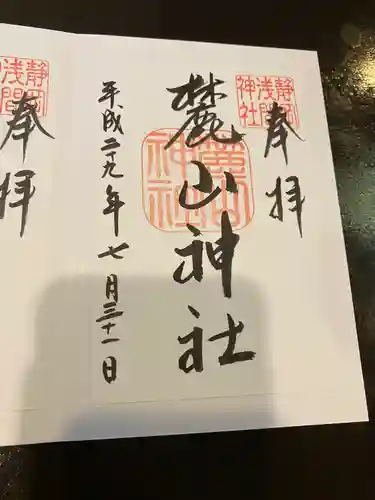 奉拝
静岡
浅間
神社
麓山神社
麓山
神社
平成二十九年七月三十一日
奉拝
静岡
浅間